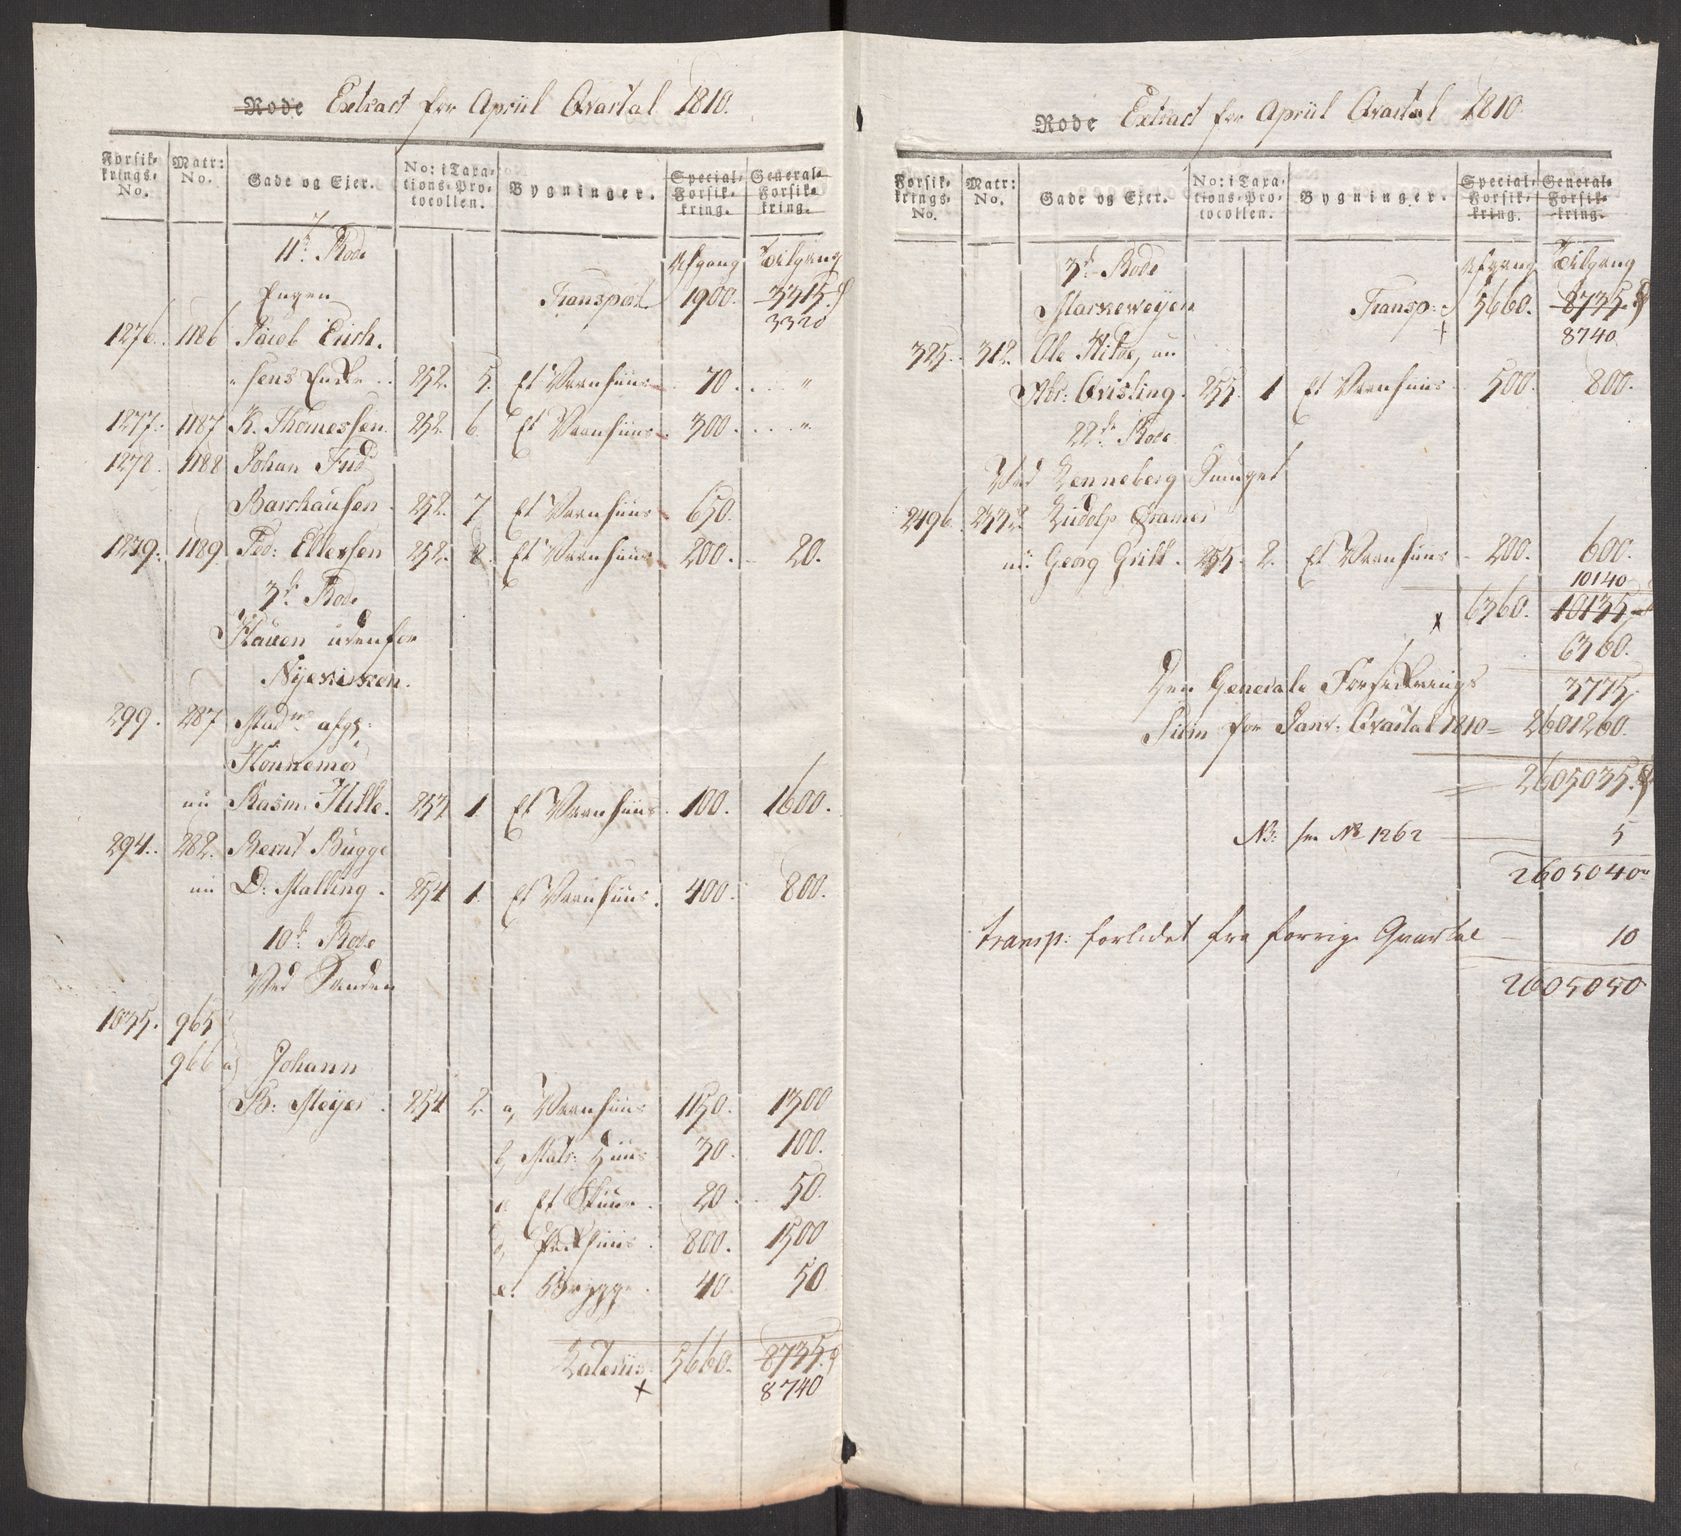 Rode Extract for Apriil Qvartal 1810.
Forsik-krings-No. Matr: No. Gade og Ejer. No: i Taxa-tions-Pro-tocollen. Bygninger. Special-Forsik-kring. General-Forsik-kring.
11te Rode Afgang Tilgang
Engen Transport 1900. 3315
3320
1276. 1186 Jacob Erich
sens Enke 252. 5. Et Vaanhuus 70. "
1277. 1187 R. Thomessen 252. 6. Et Vaanhuus 300. "
1278. 1188 Johan Frid
Barchausen 252. 7 Et Vaanhuus 650.
1279. 1189 Ped: Ellersen 252. 8. Et Vaanhuus 200. 20.
3de Rode
Hauen udenfor
Nyekirken.
299. 287 Mad afg:
nu Rasm: Hille. 253 1 Et Vaanhuus 100. 1600.
294. 282. Bernt Bugge
nu D: Malling. 254 1. Et Vaanhuus 400. 800.
10de Rode
Ved Sanden
1035. 965
966 a) Johann
B: Meyer 254 2. a, Vaanhuus 1150. 1300
b, Huus 30. 100.
c Et Skuur 20. 50.
d, Pakhuus 800. 1500
e. Brygge 40. 50
Lateris 5660. 8735.
8740
Rode Extract for Apriil Qvartal 1810.
Forsik-krings-No. Matr: No. Gade og Ejer. No: i Taxa-tions-Pro-tocollen. Bygninger. Special-Forsik-kring. General-Forsik-kring.
3de Rode Afgang Tilgang
Markeweyen Transp: 5660. 8735.
8740.
325. 312. Ole Hilde, nu
Abr: Qvisling. 255. 1 Et Vaanhuus 500. 800.
22de Rode
Ved Lenneberg
2496. Ludolp Cramer
nu Georg 255. 2. Et Vaanhuus 200. 600.
10140
6360. 10135
6360.
Den Generale Forsikrings 3775
Sum for Janv: Qvartal 1810 = 2601260.
2605035.
NB: No 1262 5
2605040
transp: forlidet fra forrige Qvartal 10
2605050